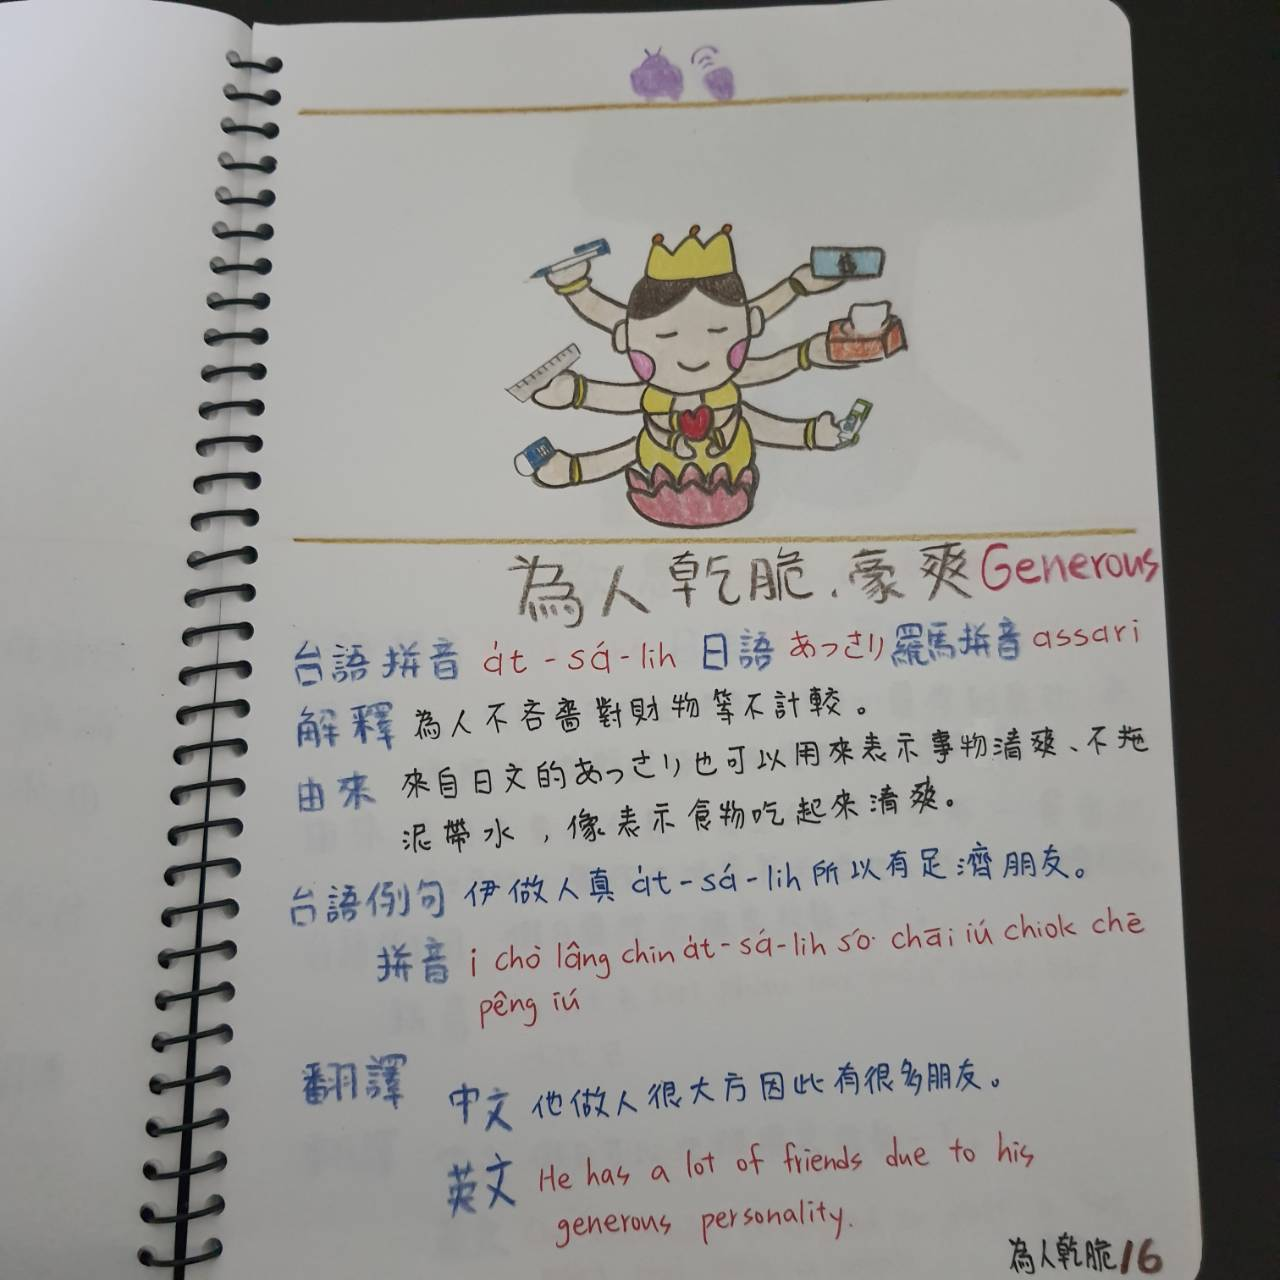 為人乾脆、豪爽 Generous
台語拼音 át-sá-lih 日語 あっさり 羅馬拼音 assari
解釋 為人不吝嗇對財物等不計較。
由來 來自日文的あっさり也可以用來表示事物清爽、不拖
泥帶水，像表示食物吃起來清爽。
台語例句 伊做人真 át-sá-lih 所以有足濟朋友。
拼音 i chò lâng chin át-sá-lih só͘ chāi iú chiok chē
pêng iú
翻譯 中文 他做人很大方因此有很多朋友。
英文 He has a lot of friends due to his
generous personality.
為人乾脆 16